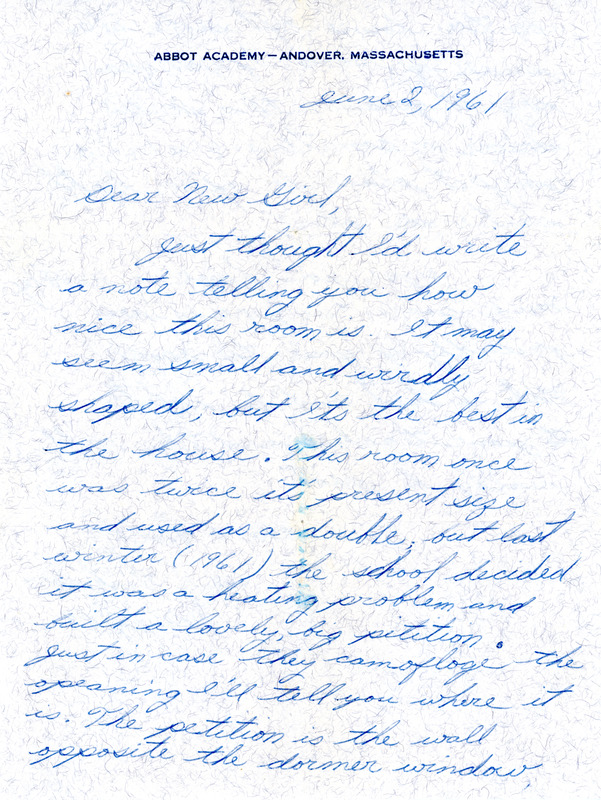 ABBOT ACADEMY—ANDOVER, MASSACHUSETTS
June 2, 1961
Dear New Girl,
Just thought I'd write
a note telling you how
nice this room is. It may
seem small and wirdly
shaped, but it's the best in
the house. This room once
was twice it's present size
and used as a double, but last
winter (1961) the school decided
it was a heating problem and
built a lovely, big petition.
Just in case they camofloge the
opeaning I'll tell you where it
is. The petition is the wall
opposite the dormer window,